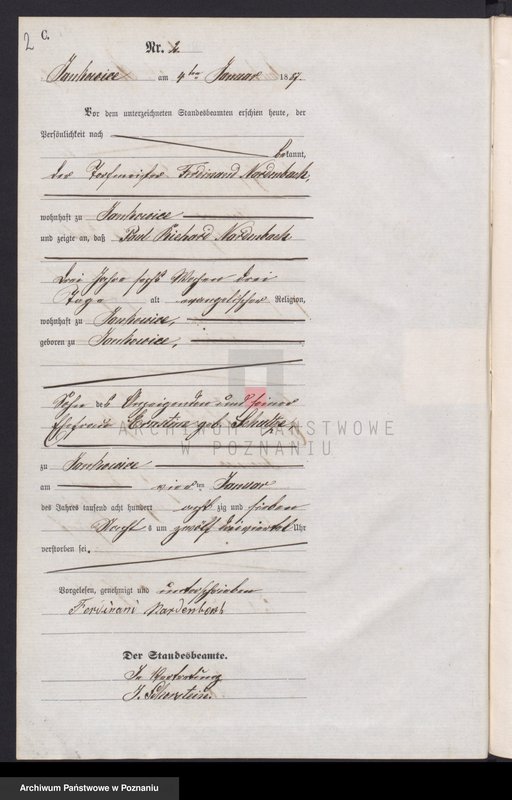 2
C.
Nr. 2
Jankowice am 4ten Januar 1887.
Vor dem unterzeichneten Standesbeamten erschien heute, der
Persönlichkeit nach
bekannt,
der Ferdinand Nordenbach,
wohnhaft zu Jankowice
und zeigte an, daß Paul Richard Nardenbach
drei Jahre sechs Wochen drei
Tage alt evangelischer Religion,
wohnhaft zu Jankowice,
geboren zu Jankowice,
Sohn des Anzeigenden und seiner
Ehefrau Ernstine geb. Schulze,
ARCHIWUM PAŃSTWOWE
W POZNANIU
zu Jankowice
am vierten Januar
des Jahres tausend acht hundert acht zig und sieben
Nachts um zwölf dreiviertel Uhr
verstorben sei.
Vorgelesen, genehmigt und unterschrieben
Ferdinand Nardenbach
Der Standesbeamte.
In Vertretung
Archiwum Państwowe w Poznaniu